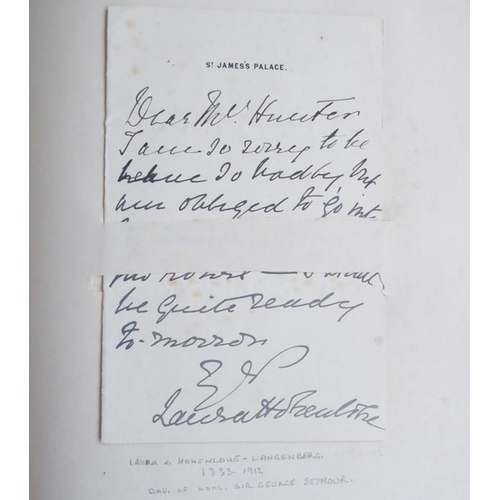 St JAMES'S PALACE.
Dear Mrs Hunter
I am so sorry to be
behave so badly, but
am obliged to go int
be quite ready
to-morrow
Laura Hohenlohe
LAURA v HOHENLOHE-LANGENBERG.
1833-1912
DAU. OF ADML. SIR GEORGE SEYMOUR.